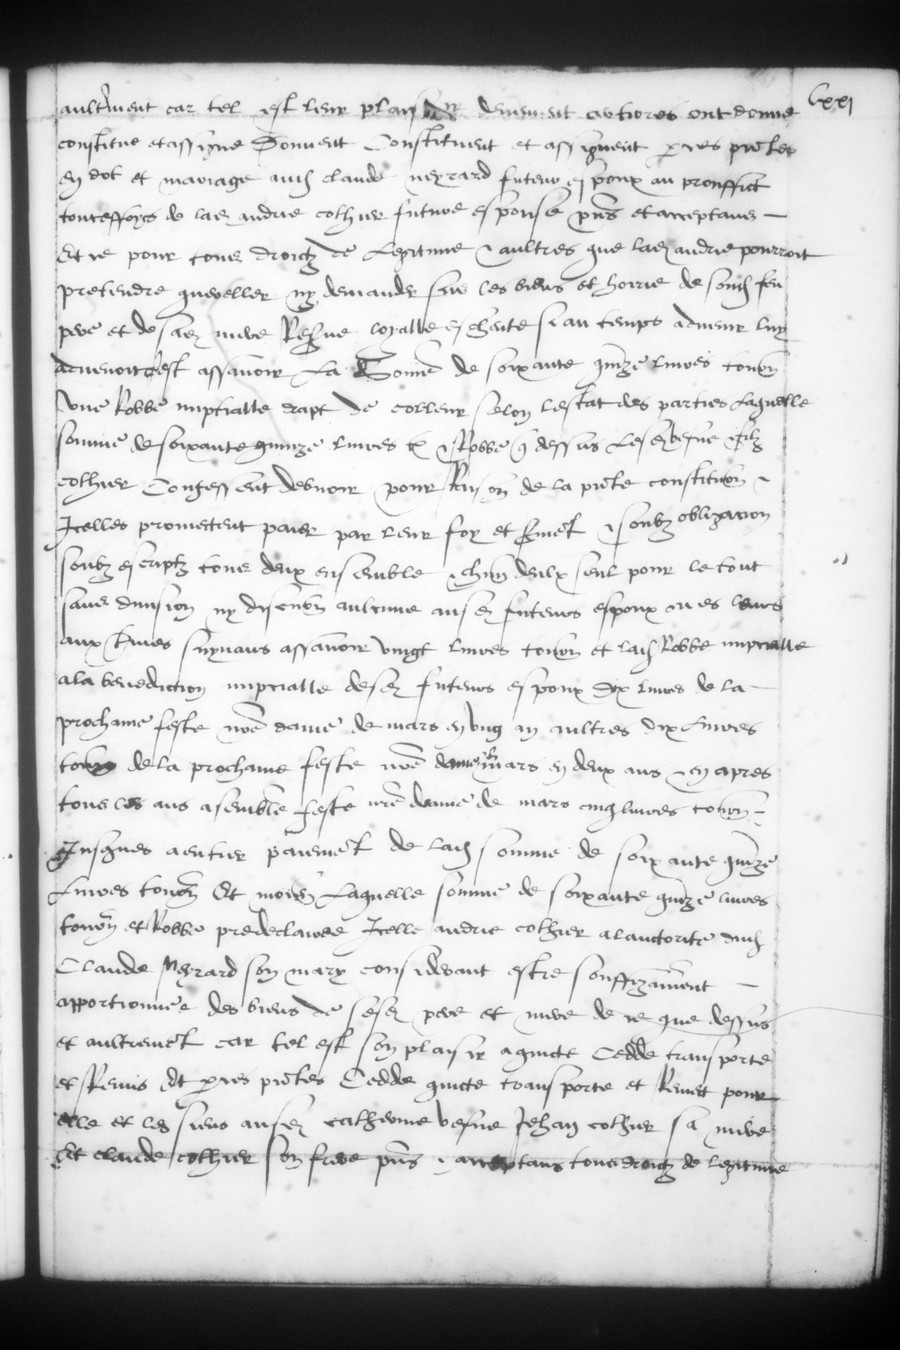 Cxxi
aultrement car tel est leur plaisir deuement auctores ont donne
constitue et assigne Donnent Constituent et assignent par ces prntes
en dot et mariage aud claude neyrard futeur espoux au prouffict
touteffoys de lad andrie cothier future espouse pns et acceptans
Et ce pour tous droictz de legitime & aultres que lad andrie pourroit
pretendre quereller ny demander sur les biens et hoirie de sond feu
pere et de sad mere Reserue loyalle escheute si au temps aduenir luy
aduenoit Cest assauoir La Somme de soixante quize liures tourn
Vne Robbe nuptialle drapt de colleur selon lestat des parties Laquelle
somme de soixante quinze liures tz & Robbe q dessus lesd vefue & filz
cothier Confessent debuoir pour Raison de la prnte constitution &
Icelles promettent paier par leur foy et sermet & soubz obligacion
soubz escriptz tous deux ensemble & chun deulx seul pour le tout
sans diuision ny discution aulcune ausd futeurs espoux ou es leurs
aux termes suyuans assauoir vingt liures tourn et lad Robbe nuptialle
a la benediction nuptialle desd futeurs espoux dix liures de la
prochaine feste nre dame de mars en vng an aultres dix liures
tourn de la prochaine feste nre dame de mars en deux ans & en apres
tous les ans a semble feste nre dame de mars cinq liures tourn
Jusques a entier paiemet de lad somme de soixante quize
Liures tourn Et moien Laquelle somme de soixante quize liures
tourn et Robbe predeclairee Icelle andrie cothier a lauctorite dud
Claude Neyrard son mary considerant estre souffizament
apportionnee des biens de sesd pere et mere de ce que dessus
et aultremet car tel est son plaisir a quicte Cedde transporte
et Remis Et par ces prntes Cedde quicte transporte et Remet pour
elle et les siens ausd catherine vefue Jehan cothier sa mere
Et claude cothier son frere pns & acceptans tous droictz de legitime